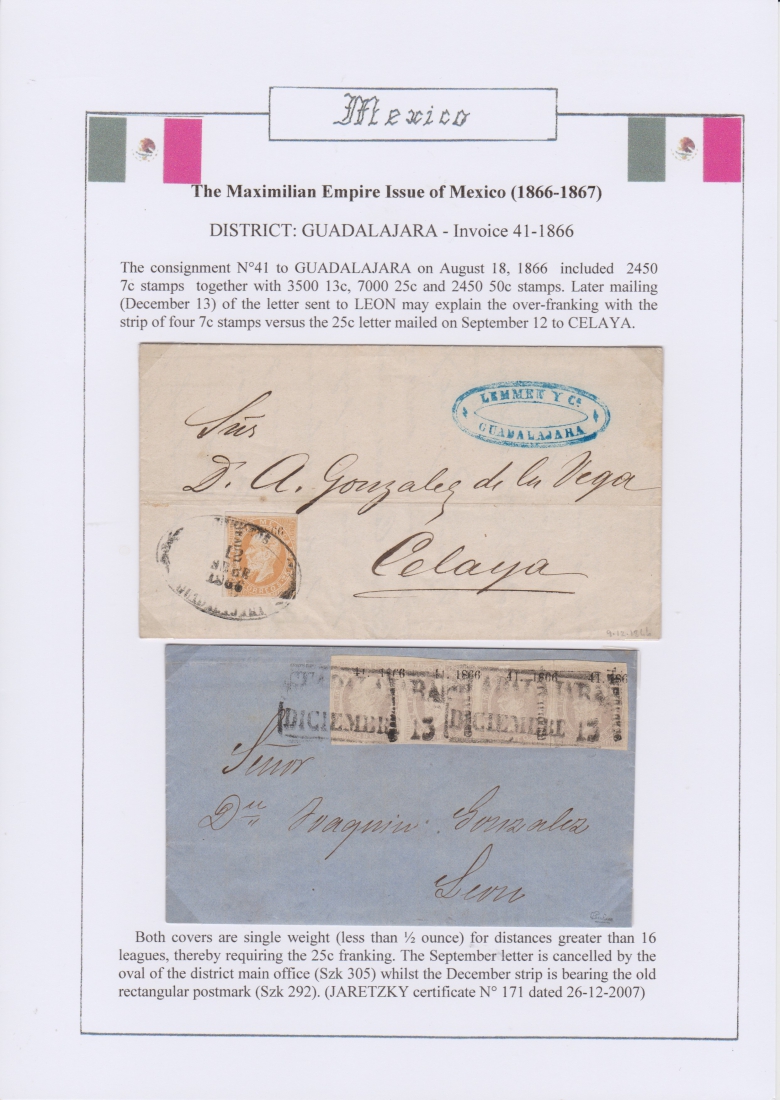 Mexico
The Maximilian Empire Issue of Mexico (1866-1867)
DISTRICT: GUADALAJARA - Invoice 41-1866
The consignment N°41 to GUADALAJARA on August 18, 1866 included 2450
7c stamps together with 3500 13c, 7000 25c and 2450 50c stamps. Later mailing
(December 13) of the letter sent to LEON may explain the over-franking with the
strip of four 7c stamps versus the 25c letter mailed on September 12 to CELAYA.
LEMMEN Y Ca.
GUADALAJARA
D. A. Gonzalez de la Vega
Celaya
1866
GUADALAJARA
41. 1866 41. 1866 41. 1866 41. 1866
GUADALAJARA GUADALAJARA
DICIEMBRE 13 DICIEMBRE 13
Señor
Dn Joaquin Gonzalez
Leon
Both covers are single weight (less than ½ ounce) for distances greater than 16
leagues, thereby requiring the 25c franking. The September letter is cancelled by the
oval of the district main office (Szk 305) whilst the December strip is bearing the old
rectangular postmark (Szk 292). (JARETZKY certificate N° 171 dated 26-12-2007)